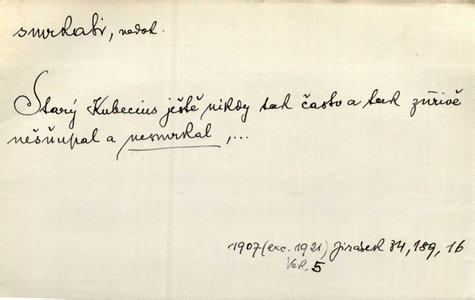 smrkati, nedok.
Starý Kubecius ještě nikdy tak často a tak zuřivě
nešňupal a nesmrkal,...
1907 (exc. 1921) Jirásek 34, 189, 16
5